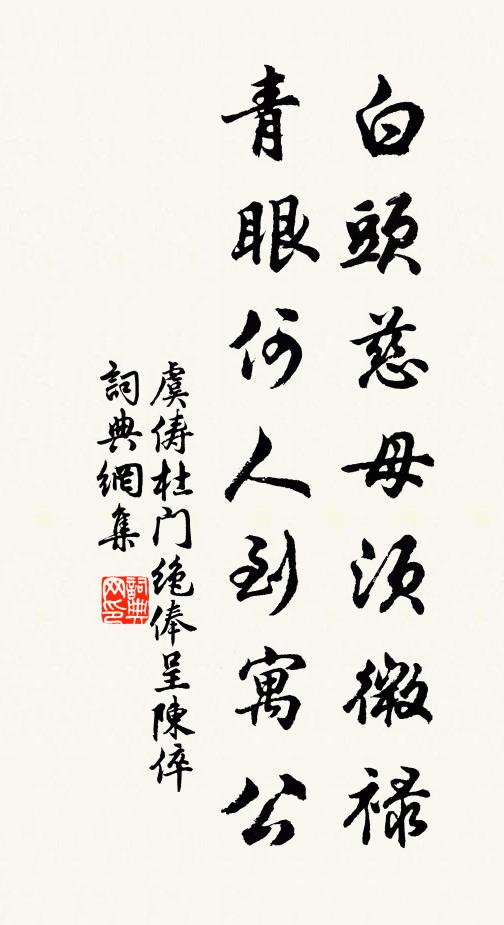 白頭慈母須微禄
青眼何人到寓公
虞俦杜门绝俸呈陳倅
詞典網集
詞典
网印